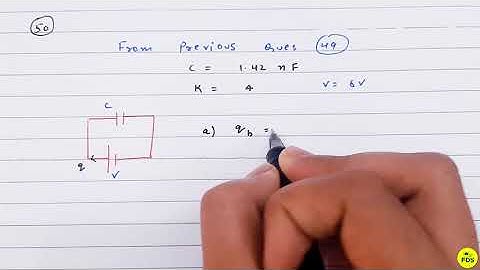 50
From Previous Ques 49
C = 1.42 nF
K = 4 V = 6V
C
a) q_b =
q
V
FDS